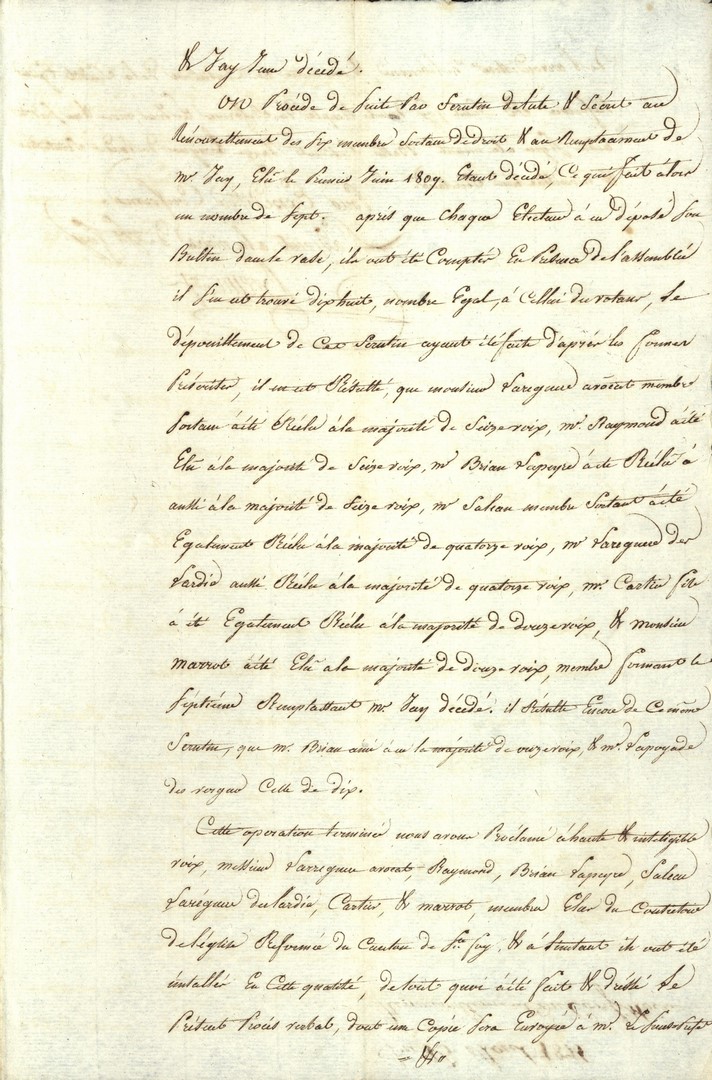 & Jay Jun décédé.
On Procéde de Suite Par Scrutin de liste & Sécret au
Rénouvellement des Six membres Sortans de droit, & au Remplacement de
mr. Jay, Elu le Premier Juin 1809. Etant décédé, Ce qui fait alors
un nombre de Sept. après que chaque Electeur à eu déposé Son
Bulletin dans le vase, ils ont été Comptés En Présence de l'assemblée
il s'en est trouvé dixhuit, nombre Egal, à Cellui du votans, Le
dépouillement de Ces Scrutin ayant été fait d'après les formes
Préscrites, il en est Résulté, que monsieur Laregnere avocat membre
Sortant à été Réélu à la majorité de Seize voix, mr. Raymond à été
Elu à la majorité de Seize voix, mr Brian Lapeyre à été Réélu à
aussi à la majorité de Seize voix, mr Saleau membre Sortant à été
Egalement Réélu à la majorité de quatorze voix, mr Laregnere des
Lardis aussi Réélu à la majorité de quatorze voix, mr. Cartier fils
à été Egalement Réélu à la majorité de douze voix, & monsieur
marrot à été Elu a la majorité de douze voix, membre formant le
Séptiéme Remplassant mr. Jay décédé. il Résulte Encore de Ce même
Scrutin, que mr. Brian ainé à eu la majorité de onze voix, & mr. Lapoyade
des vergne Celle de dix.
Cette operation terminée nous avons Proclamé à haute & inteligible
voix, messieurs Larregnere avocat Raymond, Brian Lapeyre, Saleau
Larégnere des Lardis, Cartier, & marrot, membres Elus du Consistoire
de l'église Réformée du Canton de Ste. foy, & à l'instant ils ont été
installés En Cette qualité, de tout quoi à été fait & dréssé Le
Présent Procès verbal, dont une Copie Sera Envoyée à mr. Le Sous-Préfet